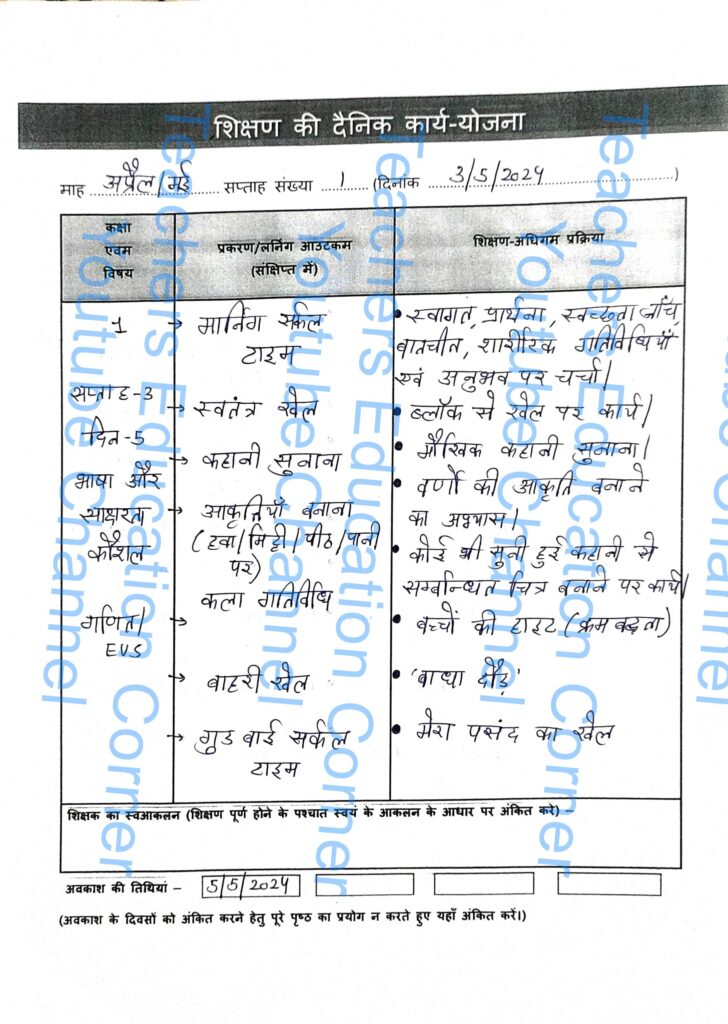 शिक्षण की दैनिक कार्य-योजना
माह अप्रैल/मई सप्ताह संख्या 1 (दिनांक 3/5/2024)
कक्षा
एवम
विषय
प्रकरण/लर्निंग आउटकम
(संक्षिप्त में)
शिक्षण-अधिगम प्रक्रिया
1
सप्ताह-3
दिन-5
भाषा और
साक्षरता
कौशल
गणित/
EVS
→ मार्निंग सर्कल
टाइम
→ स्वतंत्र खेल
→ कहानी सुनाना
→ आकृतियाँ बनाना
(हवा/मिट्टी/पीठ/पानी
पर)
कला गतिविधि
→
→ बाहरी खेल
→ गुड बाई सर्कल
टाइम
• स्वागत, प्रार्थना, स्वच्छता जाँच,
बातचीत, शारीरिक गतिविधियाँ
एवं अनुभव पर चर्चा।
• ब्लॉक से खेल पर कार्य।
• मौखिक कहानी सुनाना।
• वर्णों की आकृति बनाने
का अभ्यास।
• कोई भी सुनी हुई कहानी से
सम्बन्धित चित्र बनाने पर कार्य।
• बच्चों की हाइट (क्रमबद्धता)
• 'बाधा दौड़'
• मेरा पसंद का खेल
शिक्षक का स्वआकलन (शिक्षण पूर्ण होने के पश्चात स्वयं के आकलन के आधार पर अंकित करे) –
अवकाश की तिथियां – 5/5/2024
(अवकाश के दिवसों को अंकित करने हेतु पूरे पृष्ठ का प्रयोग न करते हुए यहाँ अंकित करें।)
Teachers Education Corner
Youtube Channel
Teachers Education Corner
Youtube Channel
Teachers Education Corner
Youtube Channel